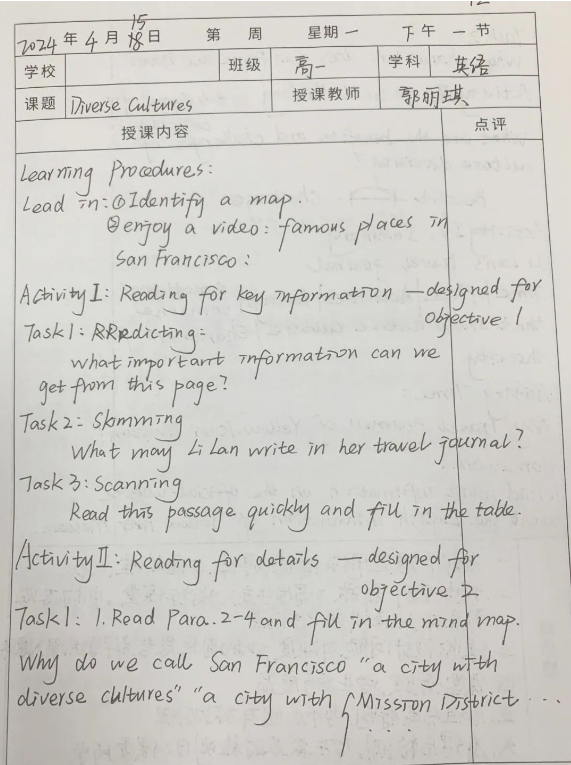 2024年4月15日 第 周 星期一 下午一节
学校 班级 高一 学科 英语
课题 Diverse Cultures 授课教师 郭丽琪
授课内容 点评
Learning Procedures:
Lead in: ①Identify a map.
②enjoy a video: famous places in
San Francisco:
Activity I: Reading for key information — designed for
objective 1
Task 1: Predicting:
What important information can we
get from this page?
Task 2: Skimming
What may Li Lan write in her travel journal?
Task 3: Scanning
Read this passage quickly and fill in the table.
Activity II: Reading for details — designed for
objective 2
Task 1: 1. Read Para. 2-4 and fill in the mind map.
Why do we call San Francisco "a city with
diverse cultures" "a city with { Mission District ...
....